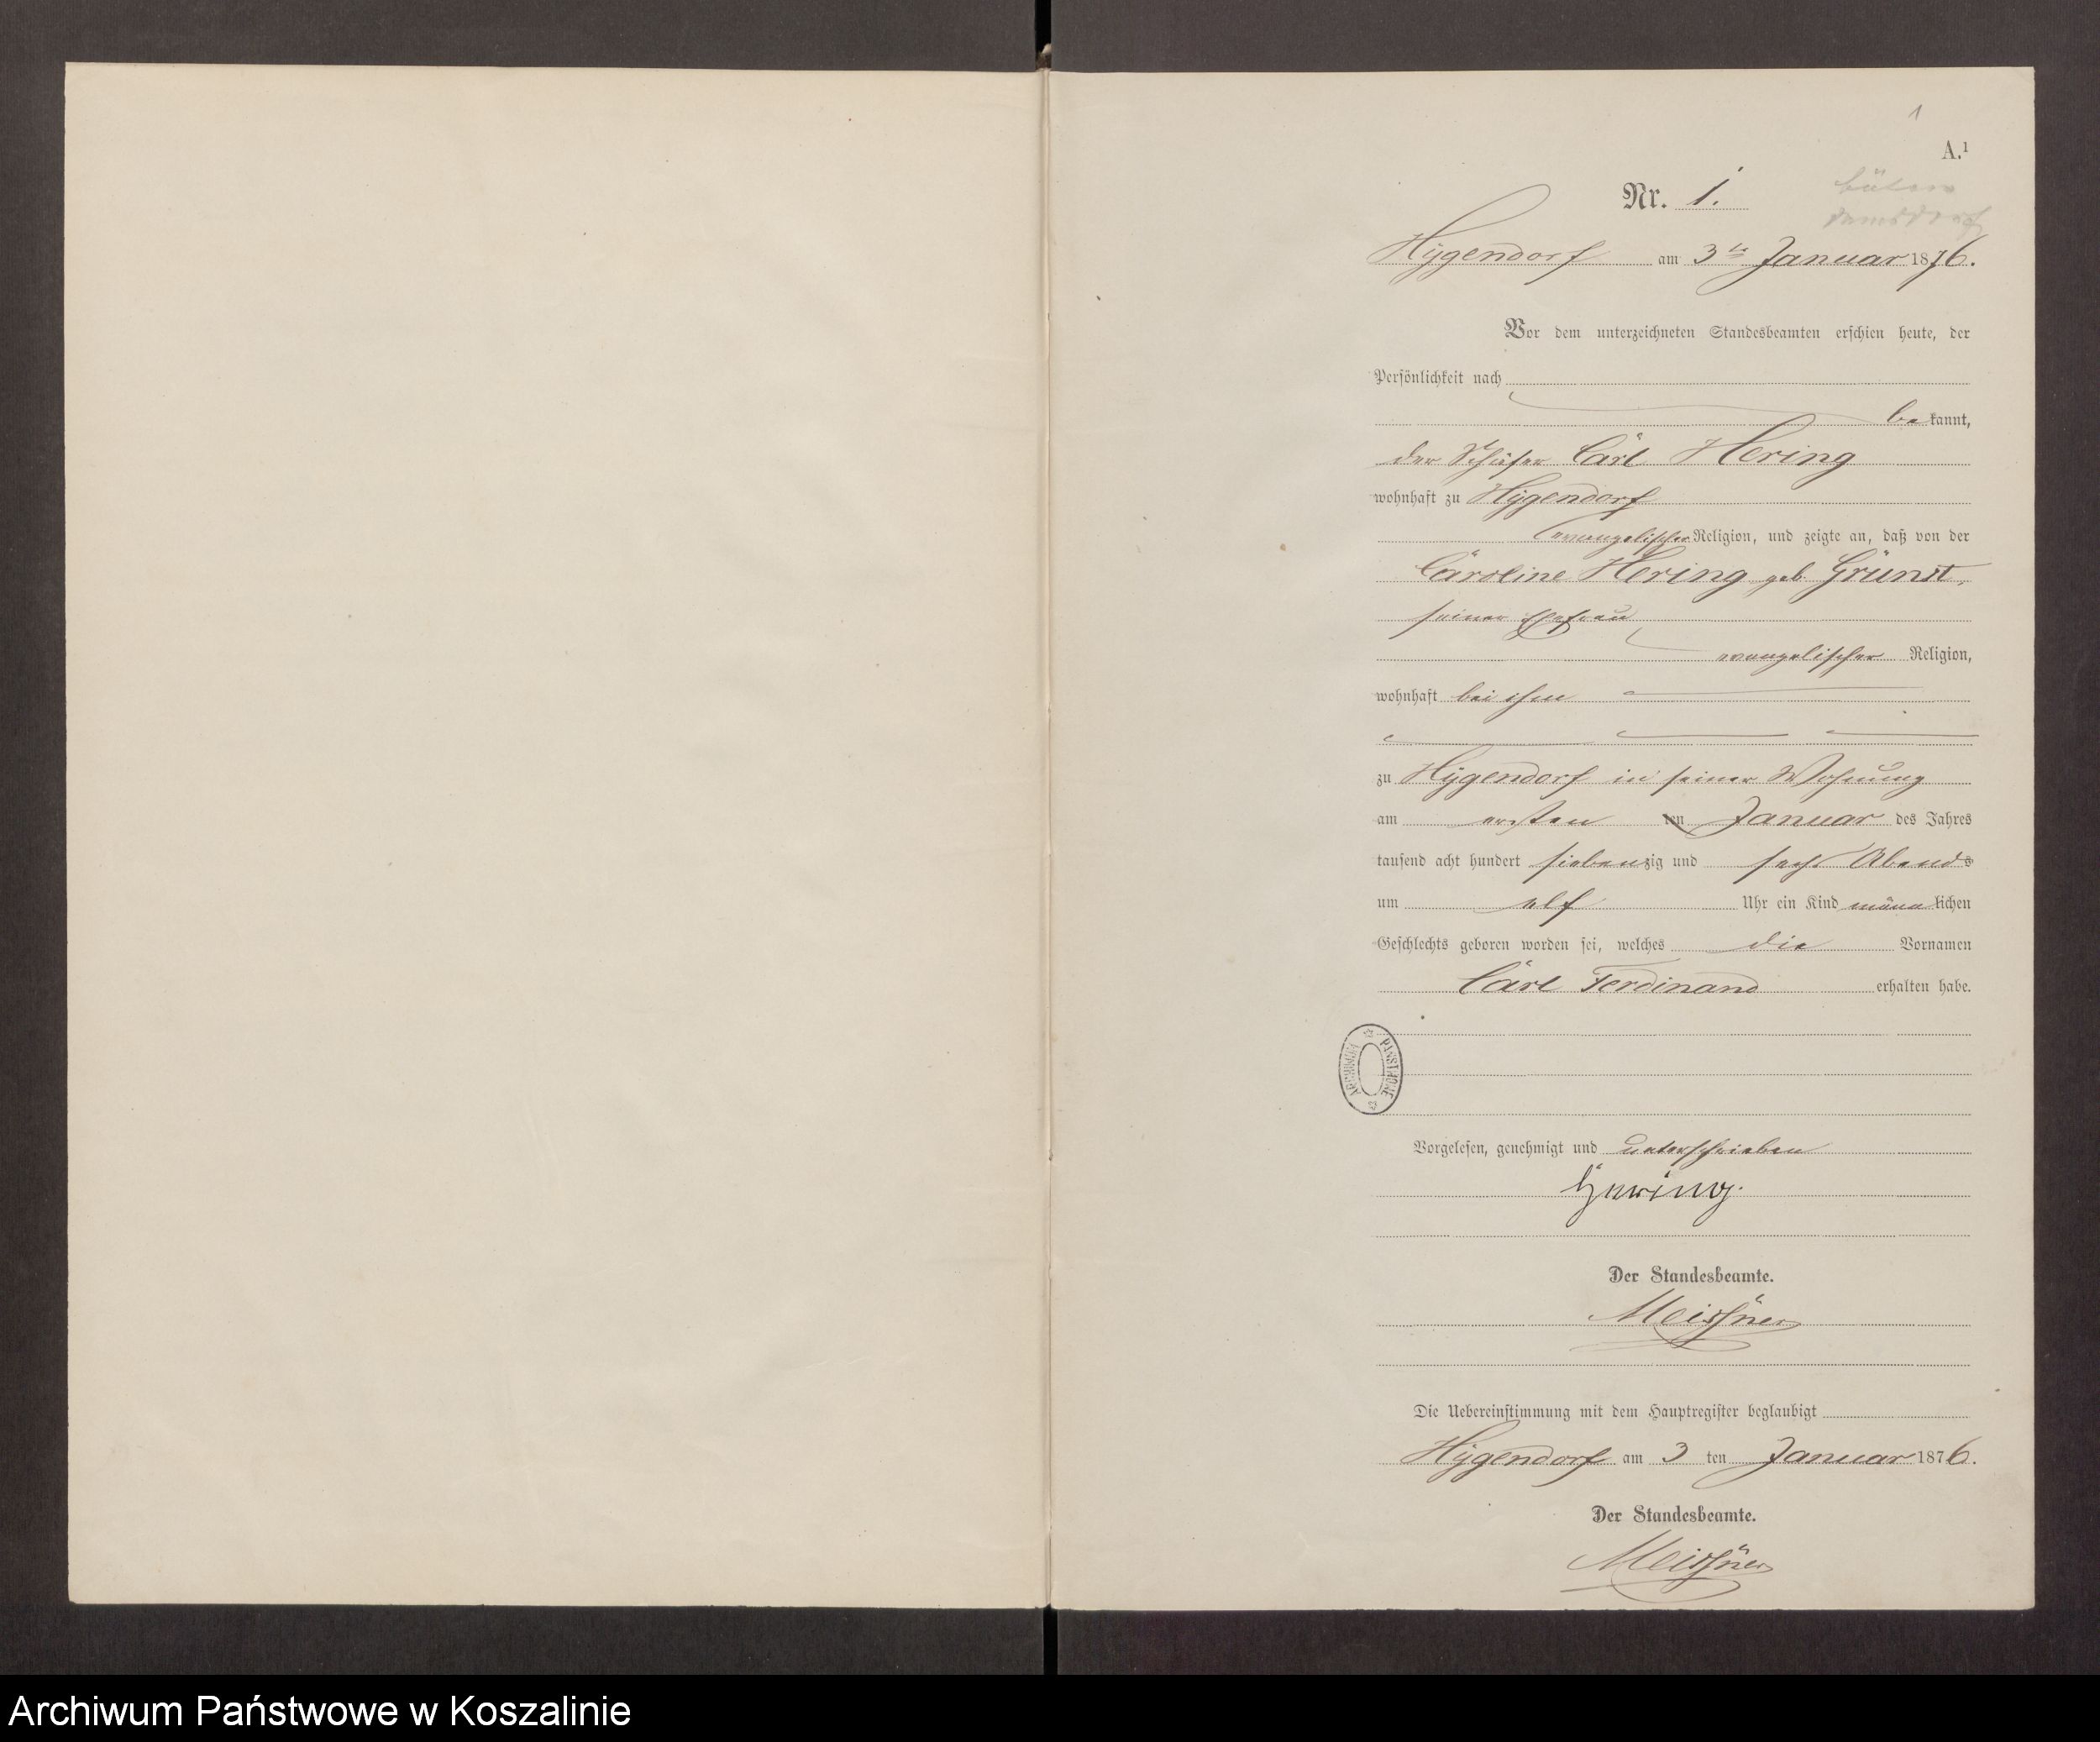 1
A.¹
Nr. 1.
Damsdorf
Hygendorf am 3ten Januar 1876.
Vor dem unterzeichneten Standesbeamten erschien heute, der
Persönlichkeit nach
bekannt,
der Schäfer Carl Hering
wohnhaft zu Hygendorf
evangelischer Religion, und zeigte an, daß von der
Caroline Hering geb. Grunst,
seiner Ehefrau
evangelischer Religion,
wohnhaft bei ihm
zu Hygendorf in seiner Wohnung
am ersten ten Januar des Jahres
tausend acht hundert siebenzig und sechs Abends
um elf Uhr ein Kind männlichen
Geschlechts geboren worden sei, welches die Vornamen
Carl Ferdinand erhalten habe.
ARCHIWUM PAŃSTWOWE
Vorgelesen, genehmigt und unterschrieben
Hering.
Der Standesbeamte.
Meissner
Die Uebereinstimmung mit dem Hauptregister beglaubigt
Hygendorf am 3 ten Januar 1876.
Der Standesbeamte.
Meissner
Archiwum Państwowe w Koszalinie